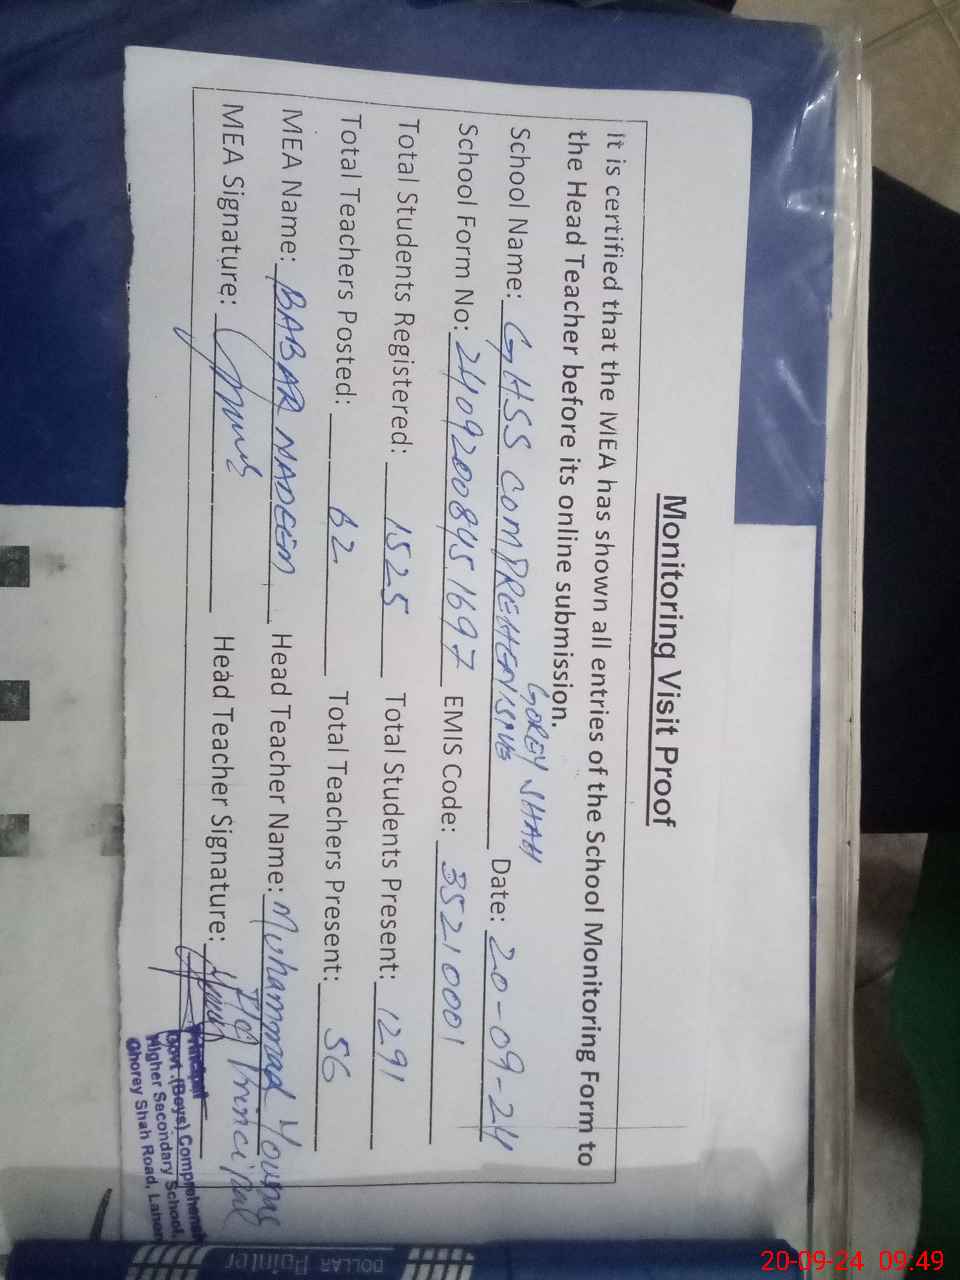 Monitoring Visit Proof
It is certified that the MEA has shown all entries of the School Monitoring Form to
the Head Teacher before its online submission.
GOREY SHAH
School Name: GHSS COMPREHENISIVE Date: 20-09-24
School Form No: 24092008451697 EMIS Code: 35210001
Total Students Registered: 1525 Total Students Present: 1291
Total Teachers Posted: 62 Total Teachers Present: 56
MEA Name: BABAR NADEEM Head Teacher Name: Muhammad Younas
Principal
MEA Signature: Head Teacher Signature:
Principal
Govt.(Boys) Comprehensi
Higher Secondary School,
Ghorey Shah Road, Lahor
DOLLAR Pointer
20-09-24 09:49